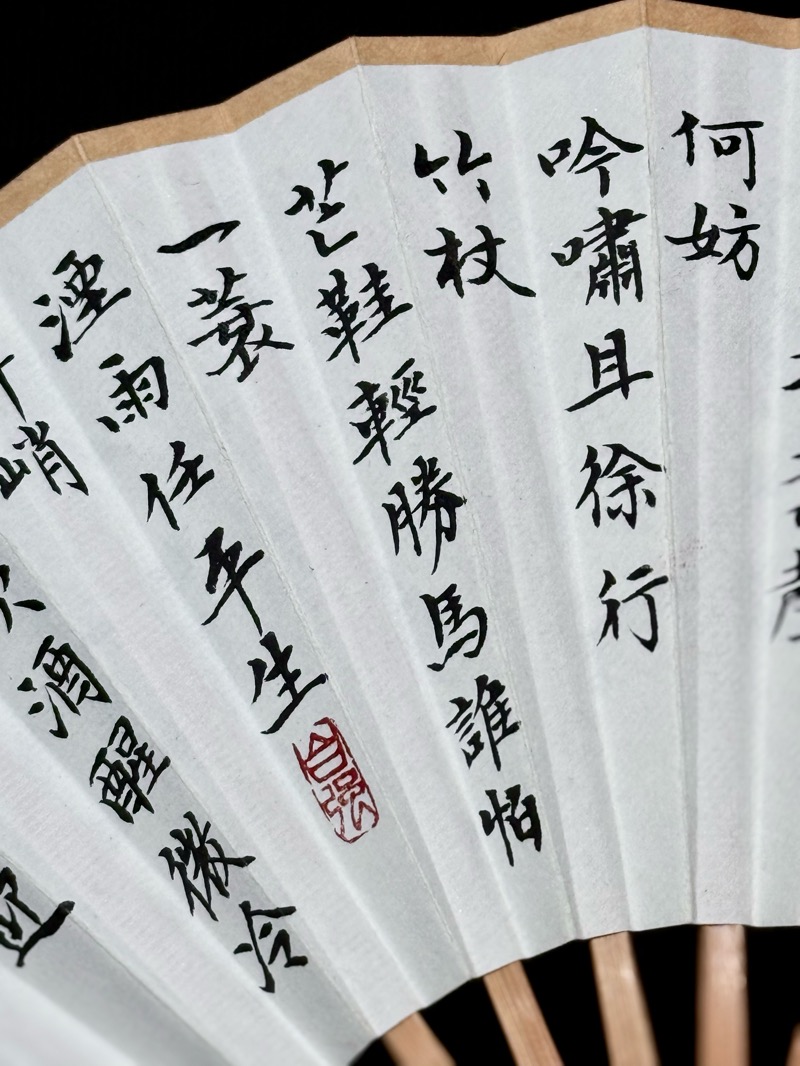 何妨
吟嘯且徐行
竹杖
芒鞋輕勝馬誰怕
一蓑
湮雨任平生
自强
峭
酒醒微冷
迎